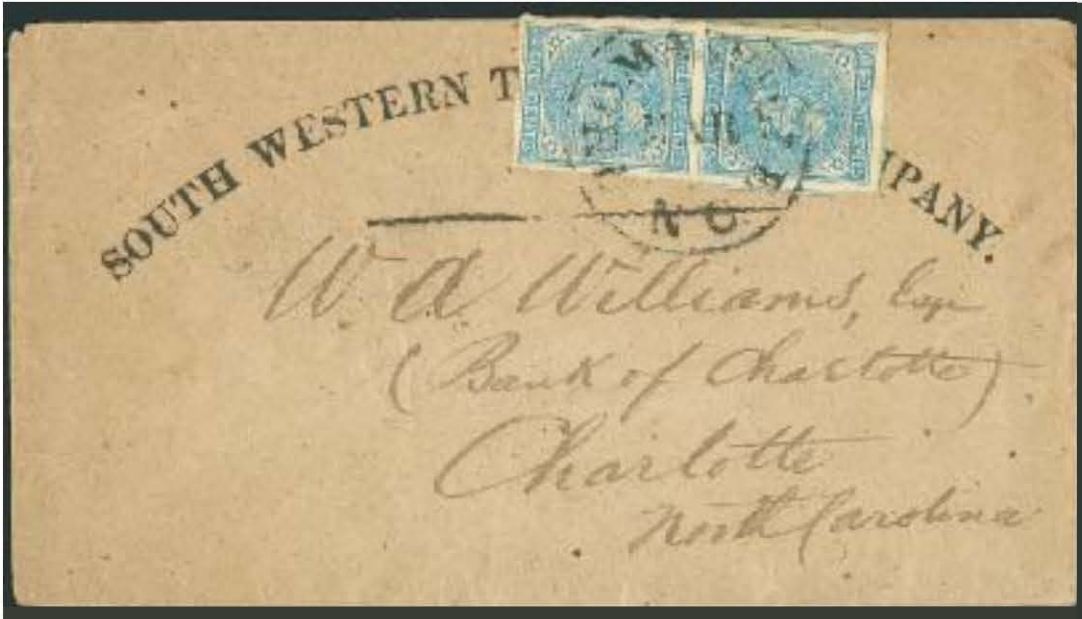 SOUTH WESTERN T MPANY.
N C
W. A. Williams, Esqr
(Bank of Charlotte)
Charlotte
North Carolina